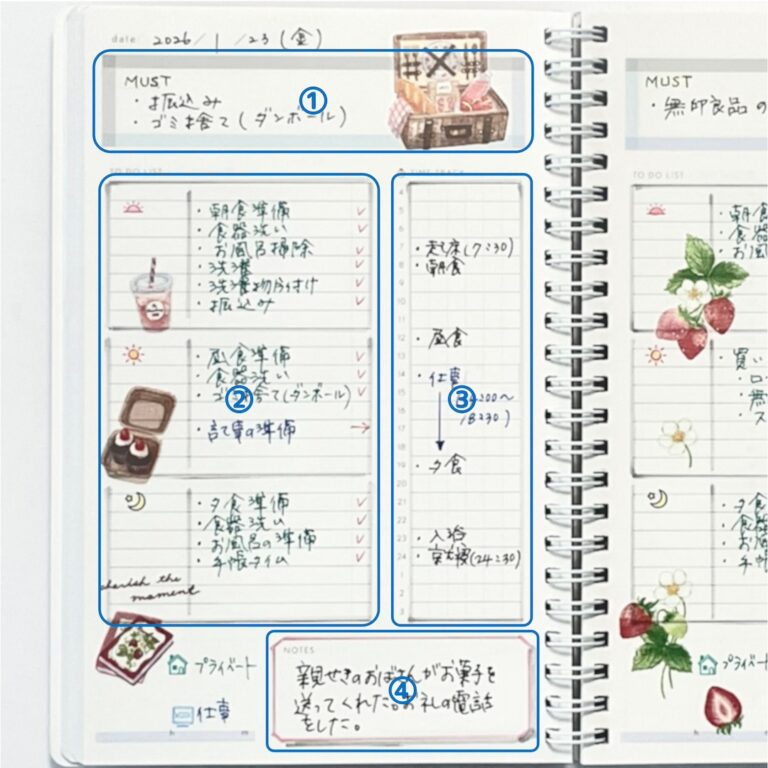 date 2026/1/23(金)
MUST
・振込み
・ゴミ捨て(ダンボール)
①
TO DO LIST
・朝食準備
・食器洗い
・お風呂掃除
・洗濯
・洗濯物片付け
・振込み
・昼食準備
・食器洗い
・ゴミ捨て(ダンボール)
②
・計算の準備
・夕食準備
・食器洗い
・お風呂の準備
・手帳タイム
cherish the
moment
プライベート
仕事
TIME TRACK
4
5
6
7 ・起床(7:30)
8 ・朝食
9
10
11
12 ・昼食
13
14 ・仕事
③
15 (14:00〜
16 18:30)
17
18
19 ・夕食
20
21
22
23 ・入浴
24 ・就寝(24:30)
1
2
3
NOTES
親せきのおばさんがお菓子を
送ってくれた。お礼の電話
をした。
④
MUST
・無印良品の
TO DO LIST
・朝食
・食器
・お風
・買い
・ロ
・無
・ス
・夕食
・食器
・お風
・手帳
プライベート
仕事